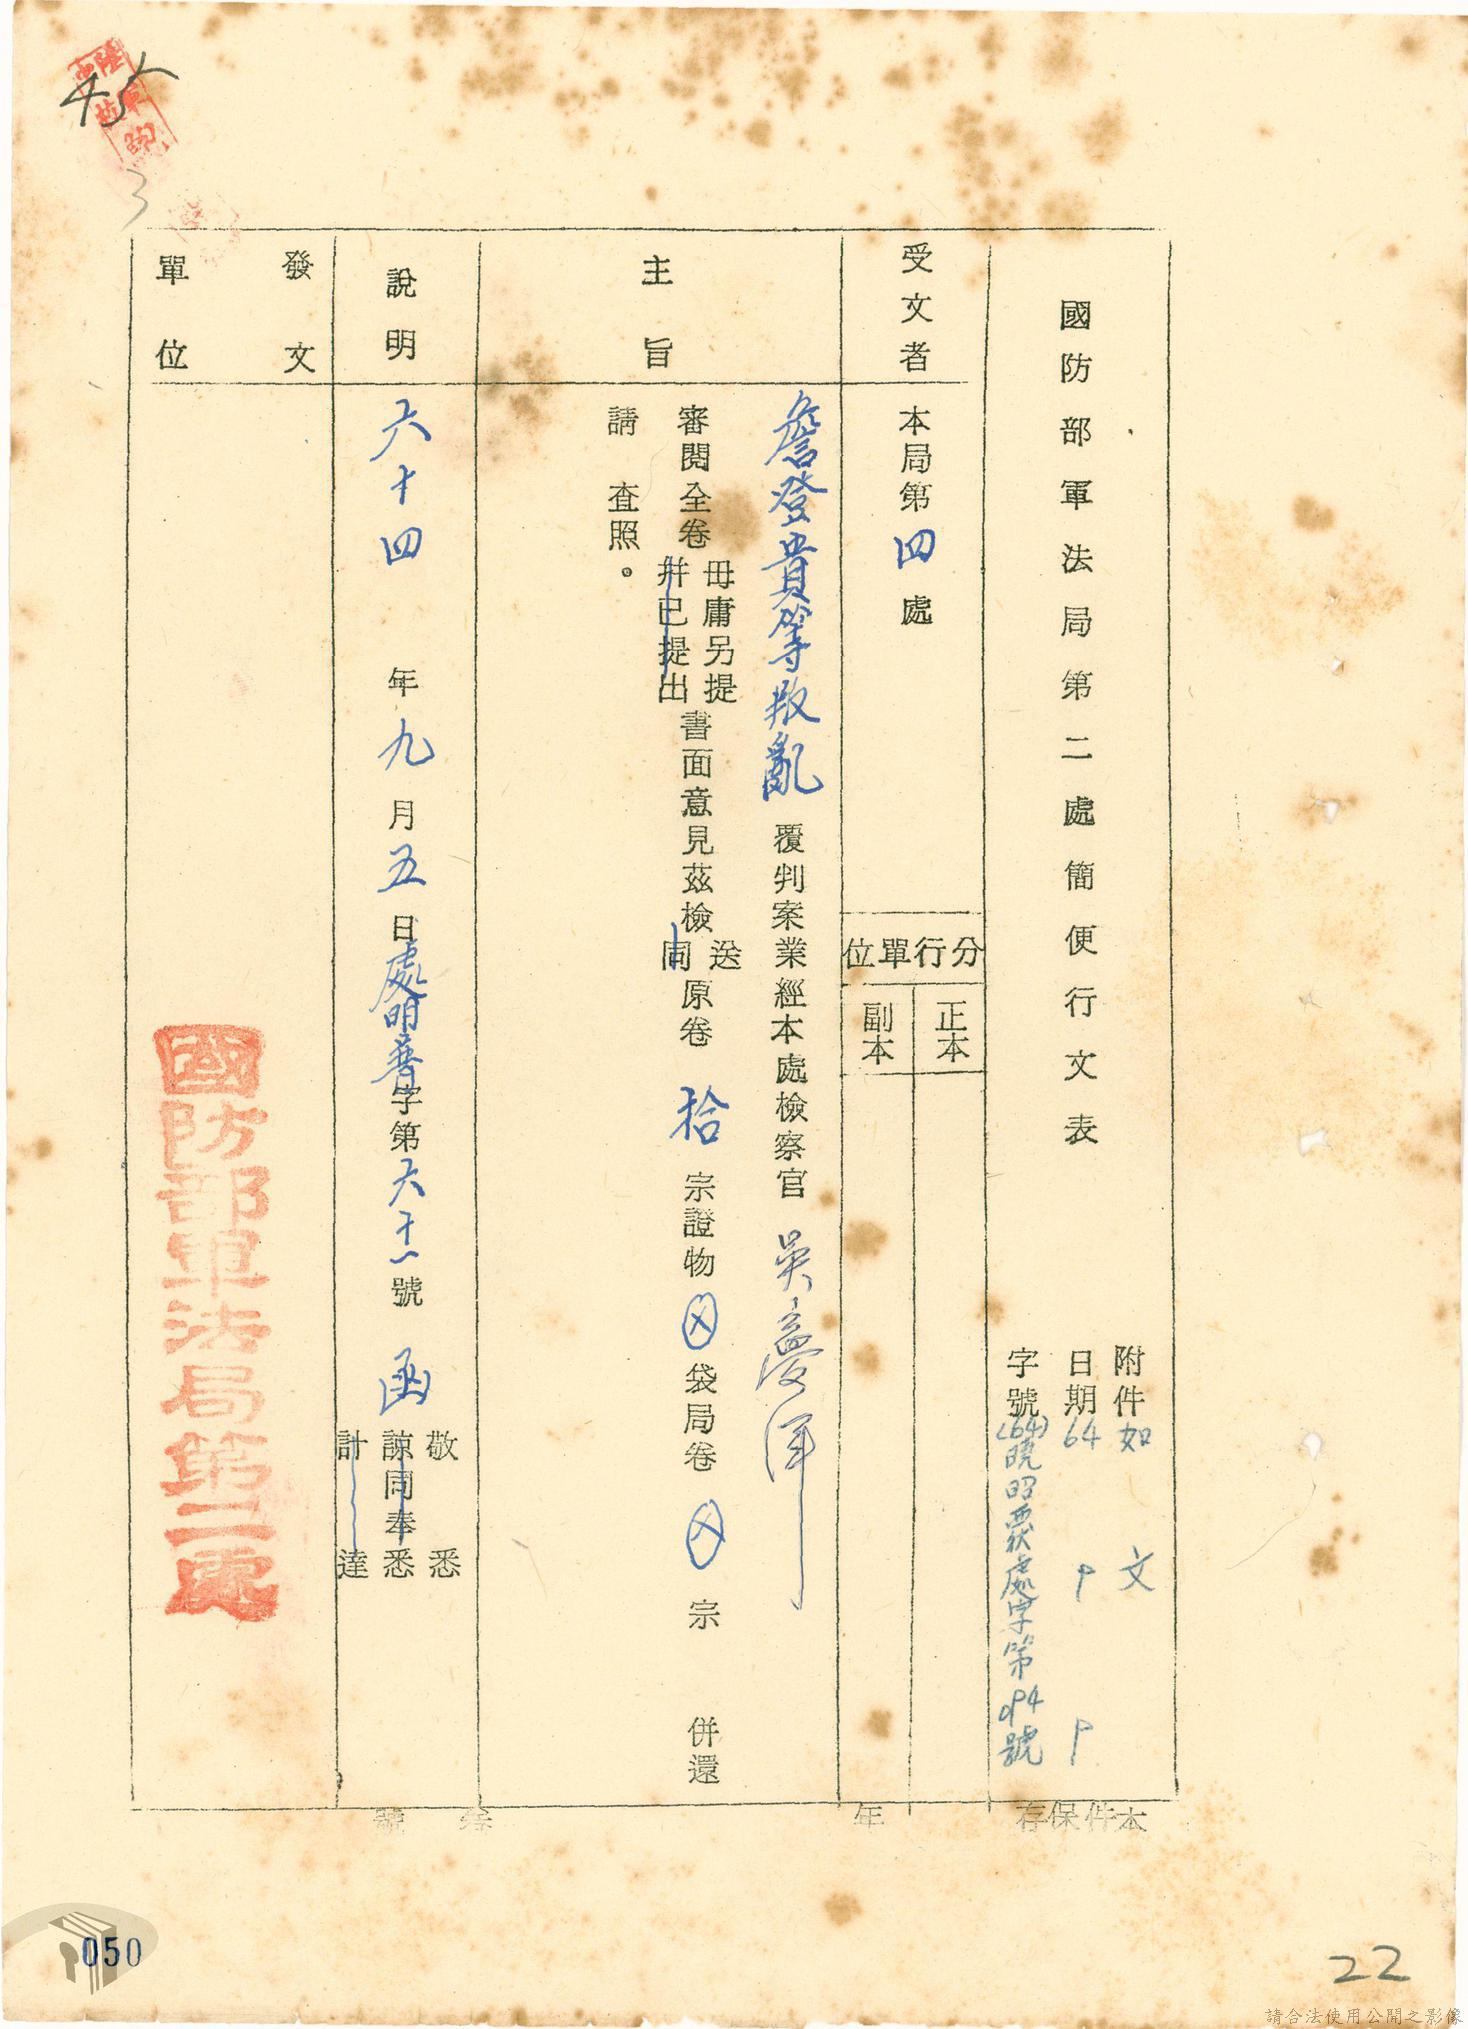 國防部軍法局第二處簡便行文表
附件 如文
日期 64 9 9
字號 (64)曉昭覆處字第 號
受文者
本局第四處
分行單位
正本
副本
主旨
詹登貴等叛亂覆判案業經本處檢察官
審閱全卷 毋庸另提 并已提出 書面意見茲檢 送 同 原卷 拾 宗證物 袋局卷 宗 併還
請 查照。
說明
六十四年九月五日處明普字第六十一號函 敬悉 諒同奉悉 計達
發文單位
國防部軍法局第二處
本件保存 年 卷 號
45
3
050
22
請合法使用公開之影像